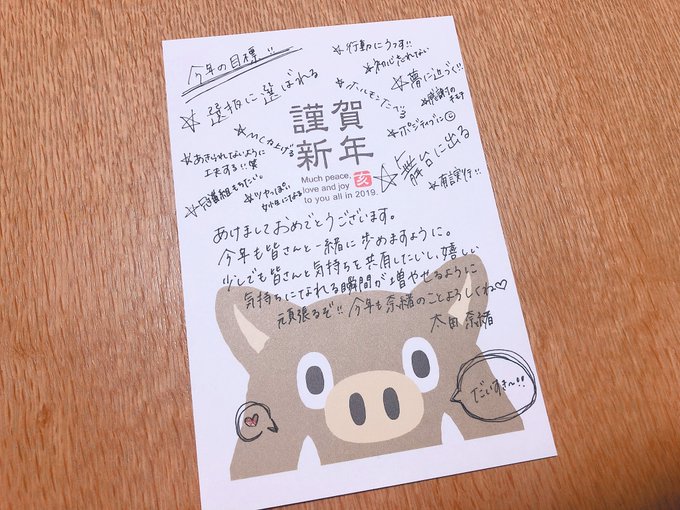 今年の目標!!
☆選抜に選ばれる
☆行動にうつす!!
☆初心忘れない
☆夢に近づく!!
☆感謝のキモチ
☆ポジティブに
☆舞台に出る
☆有言実行!!
☆あきられてないように
工夫する!!笑
☆冠番組もちたい。
謹賀
新年
Much peace,
love and joy
to you all in 2019.
亥
あけましておめでとうございます。
今年も皆さんと一緒に歩めますように。
少しでも皆さんと気持ちを共有したいし、嬉しい
気持ちになれる瞬間が増やせるように
頑張るぞ!!今年も奈緒のことよろしくね♡
太田 奈緒
だいすき〜!!